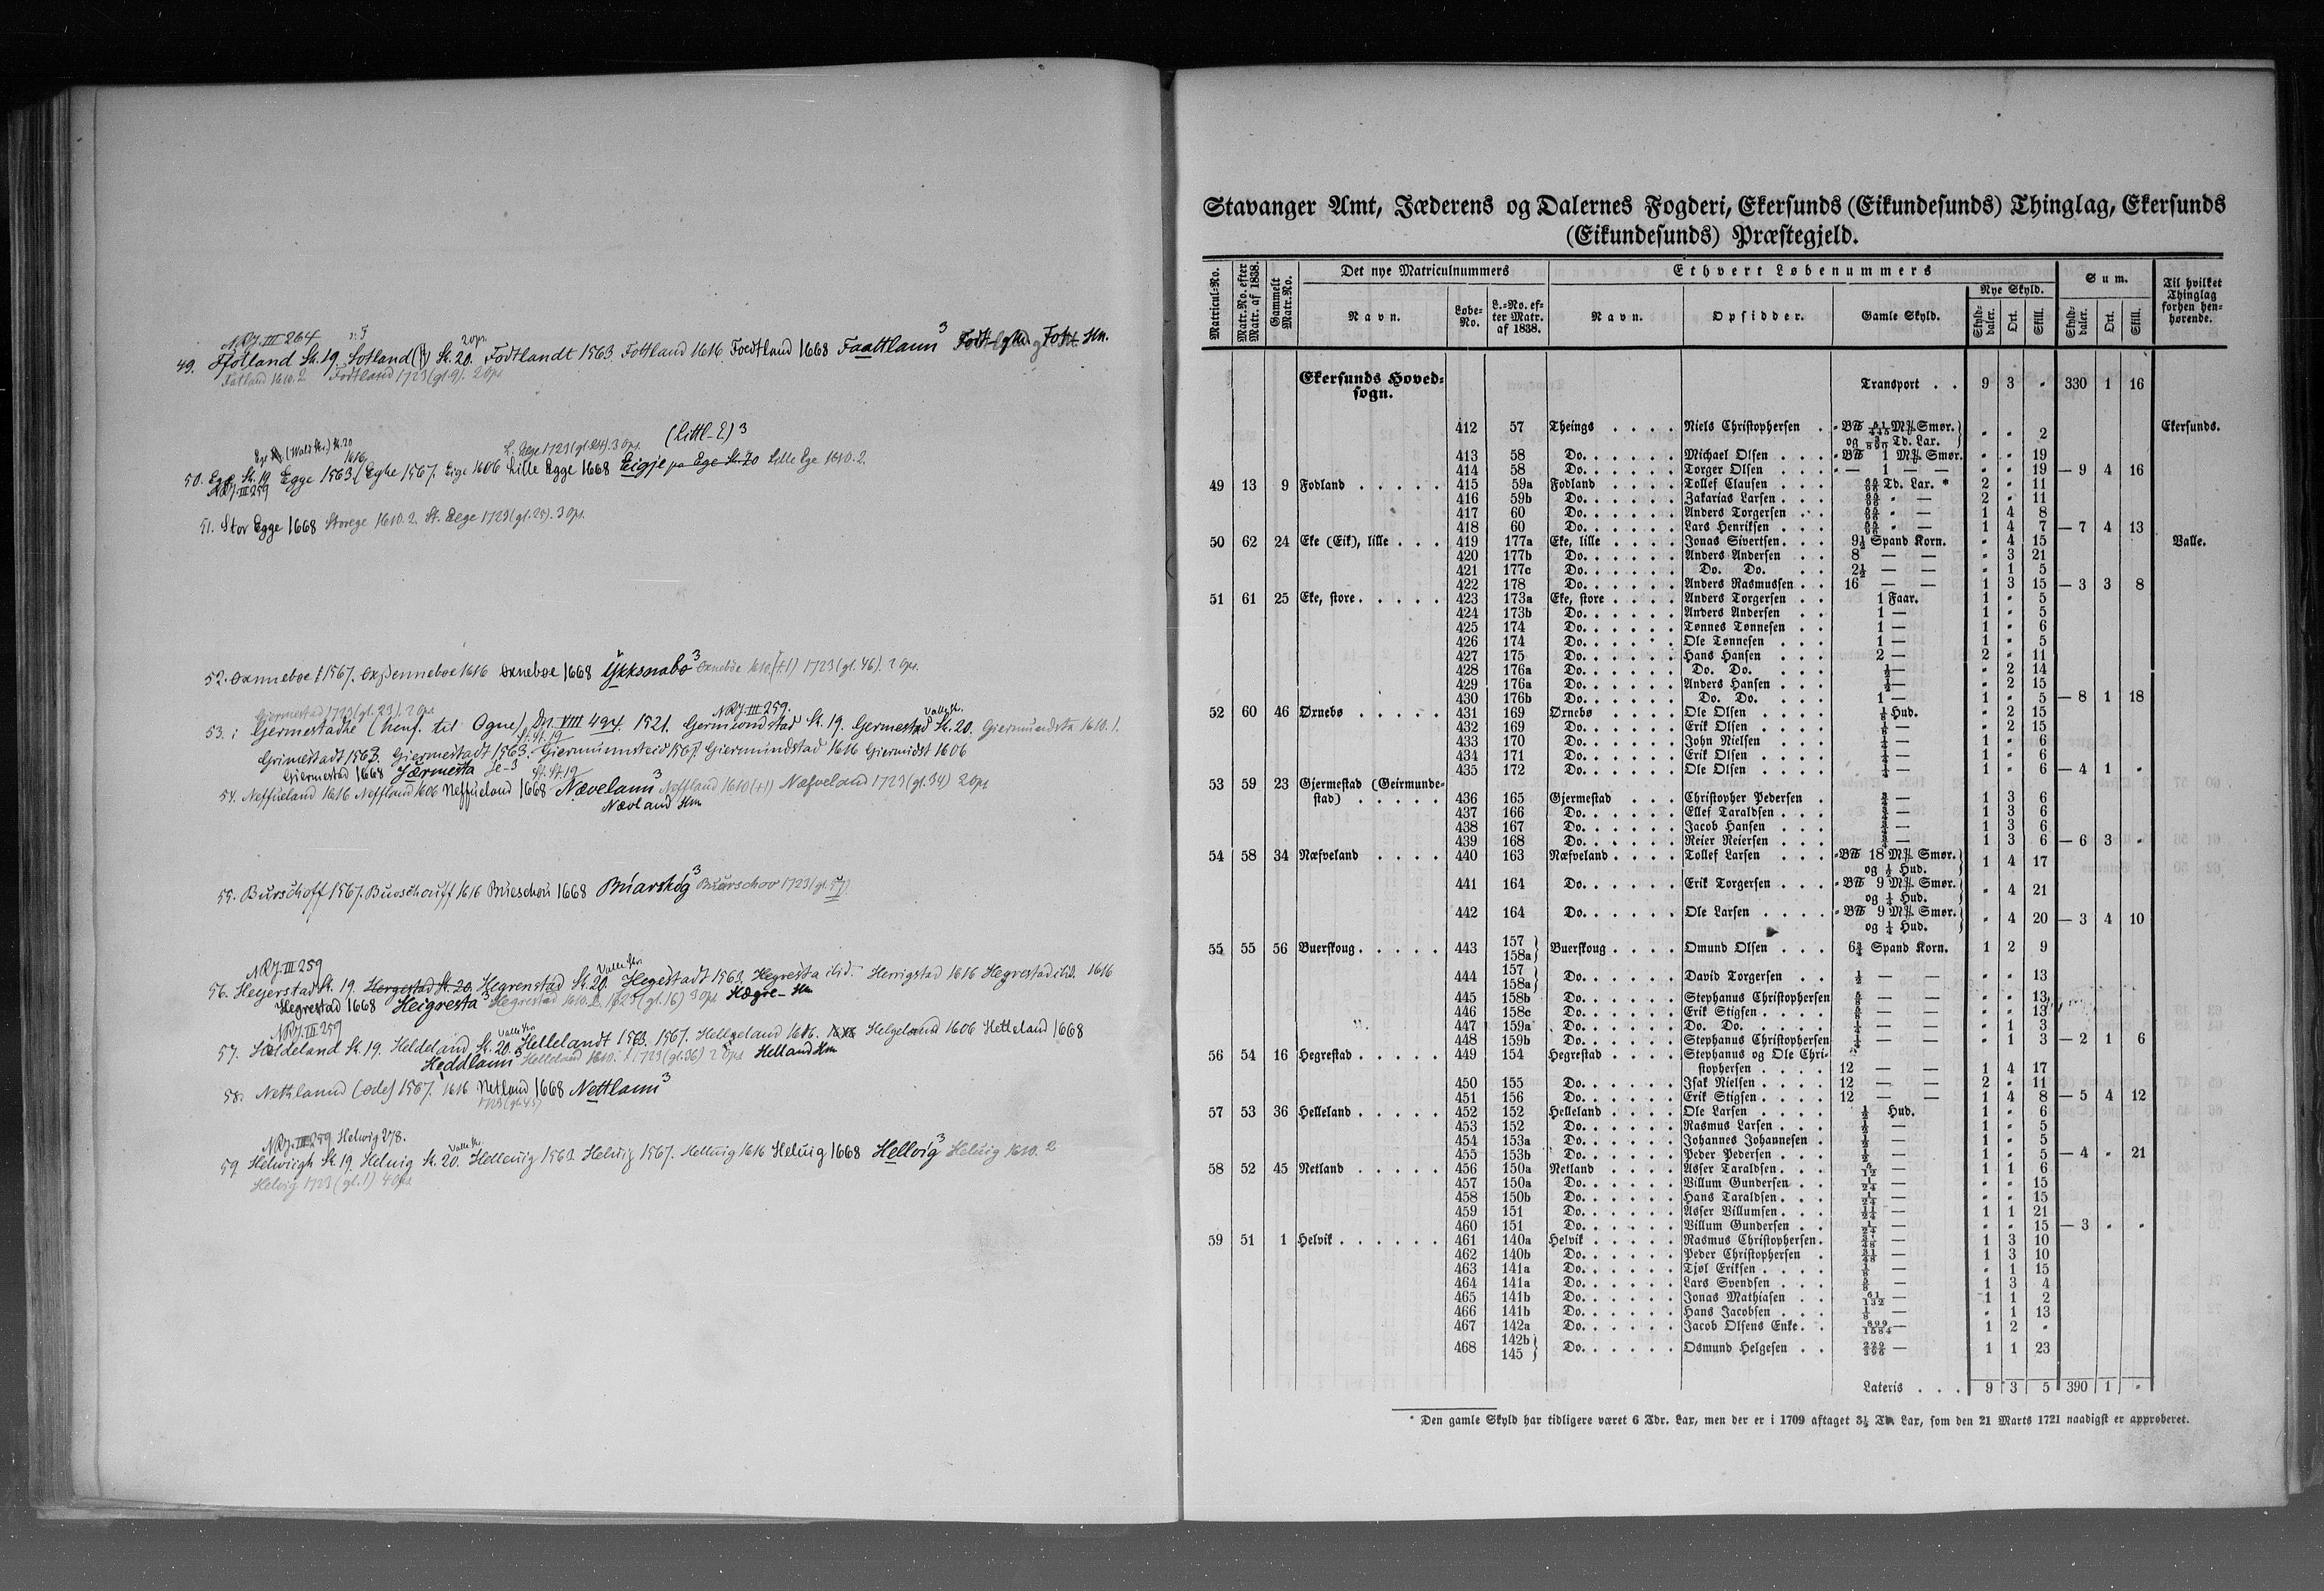 NRJ. III 264
49. Ffotland Sk. 19. Sotland Sk. 20. Fodtlandt 1563 Fottland 1616 Foedtland 1668 Faattlann 3
Fatland 1610.2 Fodtland 1723 (gl. 9). 2 Ops
(Littl-E) 3
L. Eege 1723 (gl. 24). 3 Ops.
50. Ege Sk. 19 Egge 1563. Eghe 1567. Eige 1606 Lille Egge 1668 Eigje Lille Ege 1610.2.
NRJ. III 259
51. Stor Egge 1668 Storege 1610.2. St. Eege 1723 (gl. 25). 3 Ops.
52. Oxnneboe 1567. Oxsenneboe 1616 Oxneboe 1668 Ykksnabø 3 Oxneboe 1610. 1723 (gl. 46). 2 Ops.
Giermestad 1723 (gl. 23). 2 Ops
NRJ. III 259.
53. i Germestadhe (henf. til Ogne) Dn VIII 494. 1521. Germondstad Sk. 19. Germestad Sk. 20. Giermundsta 1610. 1.
Grimestadt 1563. Giermestadt 1563. Giermunnsteid 1567. Giermundstad 1616 Giermidst 1606
Giermestad 1668 Jærmesta
54. Neffueland 1616 Neffland 1606 Neffueland 1668 Nævelann 3 Neffland 1610 Næfveland 1723 (gl. 34) 2 Ops
Nævland Hm
55. Burschoff 1567. Buoschouff 1616 Bueschou 1668 Búarskog 3 Buarschov 1723
NRJ. III 259
56. Heyerstad Sk. 19. Hergestad Sk. 20. Hegrenstad Sk. 20. Hegestadt 1563. Hegresta ibid. Herrigstad 1616 Hegrestad ibid. 1616
Hegrestad 1668 Heigresta 3 Hegrestad 1610.2. 1723 (gl. 16) 3 Ops Hægre- Hm
NRJ. III 259
57. Hældeland Sk. 19. Heldeland Sk. 20. Hellelandt 1563. 1567. Hellgeland 1616. Helgeland 1606 Helleland 1668
Heddlann 3 Helleland 1610. 1723 (gl. 36) 2 Ops Helland Hm
58. Nethlannd (øde) 1567. 1616 Netland 1668 Nettlann 3
1723 (gl. 45)
NRJ. III 259 Helwig 278.
59 Helwiigh Sk. 19. Heluig Sk. 20. Helleuig 1563 Heluig 1567. Helluig 1616 Heluig 1668 Hellvig 3 Heluig 1610. 2
Helvig 1723 (gl. 1) 4 Ops
Stavanger Amt, Jæderens og Dalernes Fogderi, Ekersunds (Eikundesunds) Thinglag, Ekersunds
(Eikundesunds) Præstegjeld.
Matricul-No. Matr.No. efter Matr. af 1838. Gammelt Matr.No. Det nye Matriculnummers Ethvert Løbenummers Sum. Til hvilket Thinglag forhen henhørende.
Navn. Løbe-No. L.-No. efter Matr. af 1838. Navn. Opsidder. Gamle Skyld. Nye Skyld. Skylddaler. Ort. Skill. Skylddaler. Ort. Skill.
Ekersunds Hovedsogn. Transport . . 9 3 " 330 1 16
412 57 Theings . . . . Niels Christophersen . Smør. og Td. Lar. " " 2 Ekersunds.
413 58 Do. . . . . . Michael Olsen . . . " 1 Smør. " " 19
414 58 Do. . . . . . Torger Olsen . . . — 1 — — " " 19 — 9 4 16
49 13 9 Fodland . . . . . 415 59a Fodland . . . . Tollef Clausen . . . Td. Lar. * 2 " 11
416 59b Do. . . . . . Zakarias Larsen . . . " — 2 " 11
417 60 Do. . . . . . Anders Torgersen . . " — 1 4 8
418 60 Do. . . . . . Lars Henriksen . . . " — 1 4 7 — 7 4 13
50 62 24 Eke (Eik), lille . . . 419 177a Eke, lille . . . . Jonas Sivertsen . . . 9½ Spand Korn. " 4 15 Valle.
420 177b Do. . . . . . Anders Andersen . . 8 — — " 3 21
421 177c Do. . . . . . Do. Do. . . 2½ — — " 1 5
422 178 Do. . . . . . Anders Rasmussen . . 16 — — 1 3 15 — 3 3 8
51 61 25 Eke, store . . . . . 423 173a Eke, store . . . . Anders Torgersen . . 1 Faar. 1 " 5
424 173b Do. . . . . . Anders Andersen . . 1 — 1 " 5
425 174 Do. . . . . . Tønnes Tønnesen . . 1 — 1 " 6
426 174 Do. . . . . . Ole Tønnesen . . . 1 — 1 " 5
427 175 Do. . . . . . Hans Hansen . . . 2 — 2 " 11
428 176a Do. . . . . . Do. Do. . . . ½ — " 2 14
429 176a Do. . . . . . Anders Hansen . . . ½ — " 2 15
430 176b Do. . . . . . Do. Do. . . . 1 — 1 " 5 — 8 1 18
52 60 46 Ørnebø . . . . . 431 169 Ørnebø . . . . . Ole Olsen . . . . ⅛ Hud. " 2 15
432 169 Do. . . . . . Erik Olsen . . . . ⅛ — " 2 15
433 170 Do. . . . . . John Nielsen . . . ¼ — 1 " 6
434 171 Do. . . . . . Erik Olsen . . . . ¼ — 1 " 6
435 172 Do. . . . . . Ole Olsen . . . . ¼ — 1 " 6 — 4 1 "
53 59 23 Gjermestad (Geirmundestad) . . . . . 436 165 Gjermestad . . . Christopher Pedersen . ¾ — 1 3 6
437 166 Do. . . . . . Ellef Taraldsen . . . ¾ — 1 3 6
438 167 Do. . . . . . Jacob Hansen . . . ¾ — 1 3 6
439 168 Do. . . . . . Reier Reiersen . . . ¾ — 1 3 6 — 6 3 "
54 58 34 Næfveland . . . . 440 163 Næfveland . . . . Tollef Larsen . . . " 18 Smør. og ½ Hud. 1 4 17
441 164 Do. . . . . . Erik Torgersen . . . " 9 Smør. og ¼ Hud. " 4 21
442 164 Do. . . . . . Ole Larsen . . . . " 9 Smør. og ¼ Hud. " 4 20 — 3 4 10
55 55 56 Buerskoug . . . . . 443 157 158a Buerskoug . . . . Omund Olsen . . . 6¾ Spand Korn. 1 2 9
444 157 158a Do. . . . . . David Torgersen . . ½ — — " " 13
445 158b Do. . . . . . Stephanus Christophersen ⅝ — — " " 13
446 158c Do. . . . . . Erik Stigsen . . . . ⅝ — — " " 13
447 159a Do. . . . . . Do. Do. . . . . ¼ — — " 1 3
448 159b Do. . . . . . Stephanus Christophersen ¼ — — " 1 3 — 2 1 6
56 54 16 Hegrestad . . . . . 449 154 Hegrestad . . . . Stephanus og Ole Christophersen . . . . 12 — — 1 4 17
450 155 Do. . . . . . Isak Nielsen . . . . 12 — — 2 " 11
451 156 Do. . . . . . Erik Stigsen . . . . 12 — — 1 4 8 — 5 4 12
57 53 36 Helleland . . . . . 452 152 Helleland . . . . Ole Larsen . . . . ½ Hud. 1 " 6
453 152 Do. . . . . . Rasmus Larsen . . . ½ — 1 " 5
454 153a Do. . . . . . Johannes Johannesen . ½ — 1 " 5
455 153b Do. . . . . . Peder Pedersen . . . ½ — 1 " 5 — 4 " 21
58 52 45 Netland . . . . . 456 150a Netland . . . . Asser Taraldsen . . . 5/12 — 1 1 6
457 150a Do. . . . . . Villum Gundersen . . 1/24 — " " 15
458 150b Do. . . . . . Hans Taraldsen . . . 1/24 — " " 15
459 151 Do. . . . . . Asser Villumsen . . . 11/24 — 1 1 21
460 151 Do. . . . . . Villum Gundersen . . 1/24 — " " 15 — 3 " "
59 51 1 Helvik . . . . . . 461 140a Helvik . . . . . Rasmus Christophersen . — 1 3 10
462 140b Do. . . . . . Peder Christophersen . 31/48 — 1 3 10
463 141a Do. . . . . . Tjøl Eriksen . . . . ⅛ — " 1 15
464 141a Do. . . . . . Lars Svendsen . . . ⅝ — 1 3 4
465 141b Do. . . . . . Jonas Mathiasen . . 61/132 — 1 1 2
466 141b Do. . . . . . Hans Jacobsen . . . ⅛ — " 1 13
467 142a Do. . . . . . Jacob Olsens Enke . . 899/1584 — 1 2 "
468 142b 145 Do. . . . . . Osmund Helgesen . . — 1 1 23
Lateris . . . 9 3 5 390 1 "
* Den gamle Skyld har tidligere været 6 Tdr. Lax, men der er i 1709 aftaget 3½ Td. Lax, som den 21 Marts 1721 naadigst er approberet.